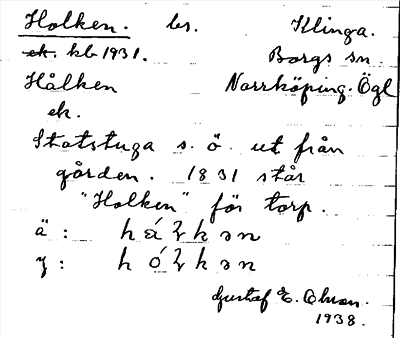 Holken. bs. Klinga.
ek. kb 1931. Borgs sn.
Hålken Norrköping. Ögl
ek.
Statstuga s. ö. ut från
gården. 1831 står
"Holken" för torp.
ä:
y:
Gustaf E.
1938.